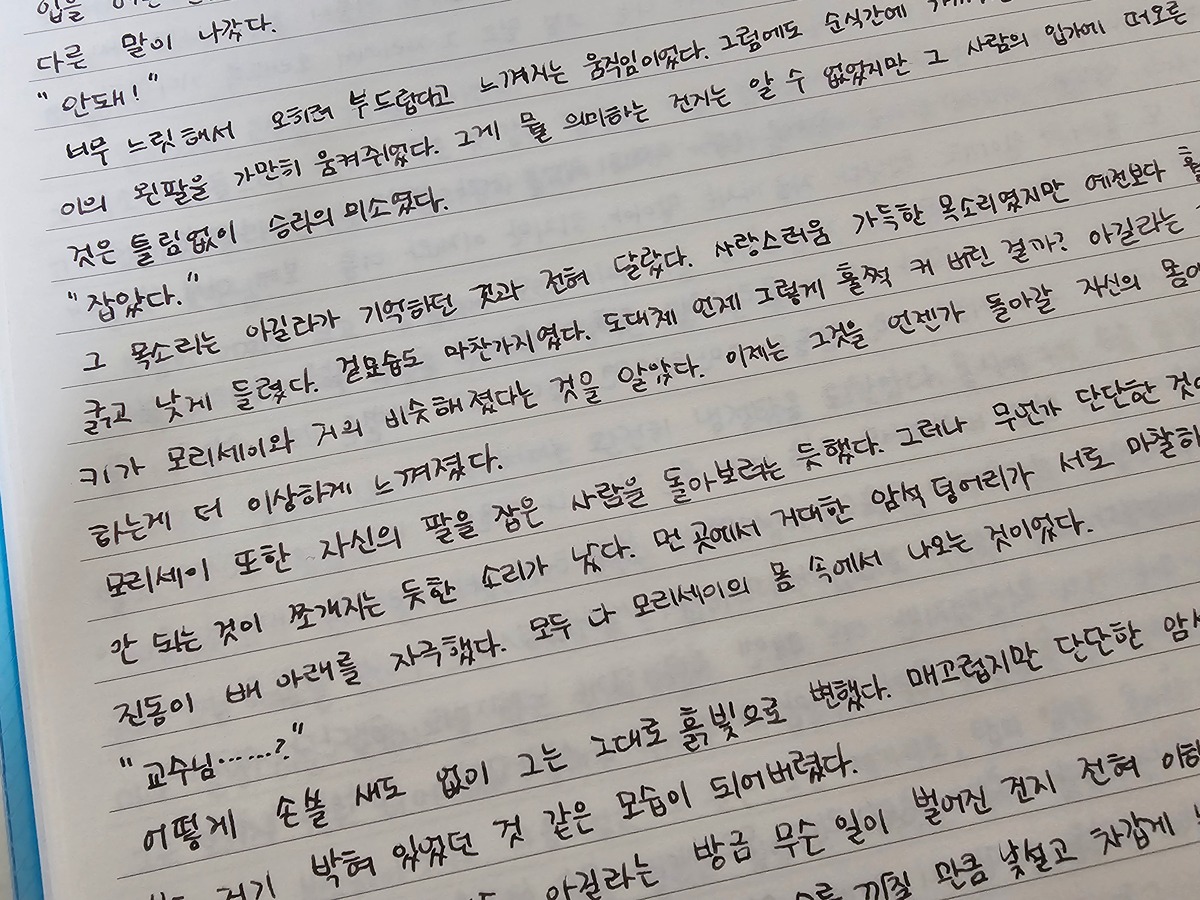 다른 말이 나갔다.
"안돼!"
너무 느릿해서 오히려 부드럽다고 느껴지는 움직임이었다. 그럼에도 순식간에
이의 왼팔을 가만히 움켜쥐었다. 그게 뭘 의미하는 건지는 알 수 없었지만 그 사람의 입가에 떠오른
것은 틀림없이 승리의 미소였다.
"잡았다."
그 목소리는 아길라가 기억하던 것과 전혀 달랐다. 사랑스러움 가득한 목소리였지만 예전보다
굵고 낮게 들렸다. 걸음걸이도 마찬가지였다. 도대체 언제 그렇게 훌쩍 커 버린 걸까? 아길라는
키가 모리세이와 거의 비슷해졌다는 것을 알았다. 이제는 그것을 언젠가 돌아갈 자신의 몸
하는게 더 이상하게 느껴졌다.
모리세이 또한 자신의 팔을 잡은 사람을 돌아보려는 듯했다. 그러나 무언가 단단한
안 되는 것이 쪼개지는 듯한 소리가 났다. 먼 곳에서 거대한 암석 덩어리가 서로 마찰하
진동이 배 아래를 자극했다. 모두 다 모리세이의 몸 속에서 나오는 것이었다.
"교수님……?"
어떻게 손쓸 새도 없이 그는 그대로 흙빛으로 변했다. 매끄럽지만 단단한 암
저기 박혀 있었던 것 같은 모습이 되어버렸다.
아길라는 방금 무슨 일이 벌어진 건지 전혀 이
끼칠 만큼 낯설고 차갑게